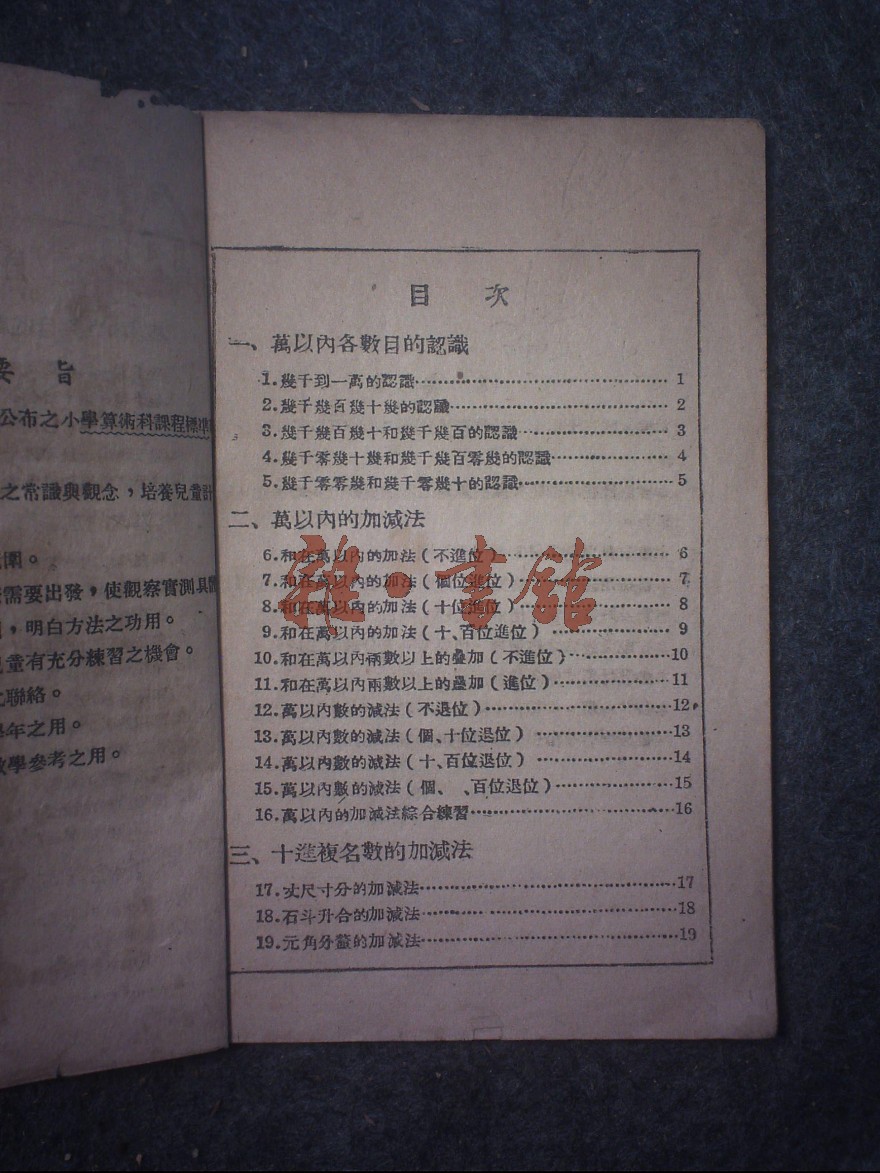 要旨
公布之小學算術科課程標準
之常識與觀念，培養兒童計
圍。
需要出發，使觀察實測具體
，明白方法之功用。
童有充分練習之機會。
聯絡。
學年之用。
教學參考之用。
目 次
一、萬以內各數目的認識
1.幾千到一萬的認識 1
2.幾千幾百幾十幾的認識 2
3.幾千幾百幾十和幾千幾百的認識 3
4.幾千零幾十幾和幾千幾百零幾的認識 4
5.幾千零零幾和幾千零幾十的認識 5
二、萬以內的加減法
6.和在萬以內的加法(不進位) 6
7.和在萬以內的加法(個位進位) 7
8.和在萬以內的加法(十位進位) 8
9.和在萬以內的加法(十、百位進位) 9
10.和在萬以內兩數以上的疊加(不進位) 10
11.和在萬以內兩數以上的疊加(進位) 11
12.萬以內數的減法(不退位) 12
13.萬以內數的減法(個、十位退位) 13
14.萬以內數的減法(十、百位退位) 14
15.萬以內數的減法(個、 、百位退位) 15
16.萬以內的加減法綜合練習 16
三、十進複名數的加減法
17.丈尺寸分的加減法 17
18.石斗升合的加減法 18
19.元角分釐的加減法 19
雜·書館